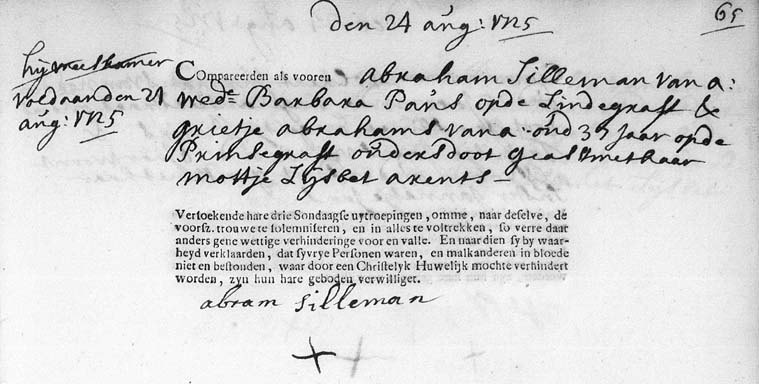 den 24 aug: 1725
65
hij weeskamer
voldaan den 21
aug: 1725
Compareerden als vooren Abraham Silleman van a:
wed.e Barbara Pans op de Lindegraft &
grietje abrahams van a: oud 37 Jaar op de
Prinsegraft ouders doot geass met haar
mottje Lijsbet arents
Versoekende hare drie Sondaagse uytroepingen, omme, naar deselve, de
voorsz. trouwe te solemniseren, en in alles te voltrekken, so verre daar
anders gene wettige verhinderinge voor en valle. En naar dien sy by waar-
heyd verklaarden, dat sy vrye Personen waren, en malkanderen in bloede
niet en bestonden, waar door een Christelyk Huwelijk mochte verhindert
worden, zyn hun hare geboden verwilliget.
abram silleman